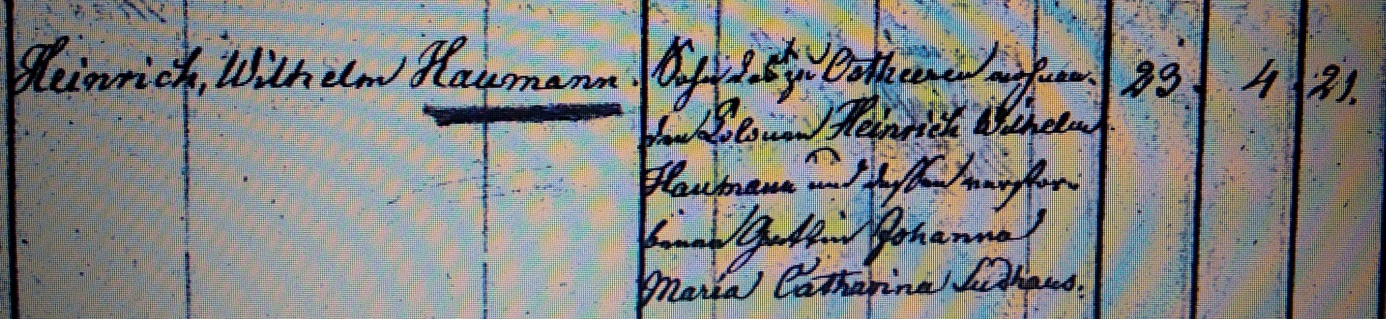 Heinrich, Wilhelm Haumann. Sohn des zu Ostheeren wohnen- 23. 4. 21.
den Colonen Heinrich Wilhelm
Haumann und dessen verstor-
benen Gattin Johanna
Maria Catharina Ludhaus.